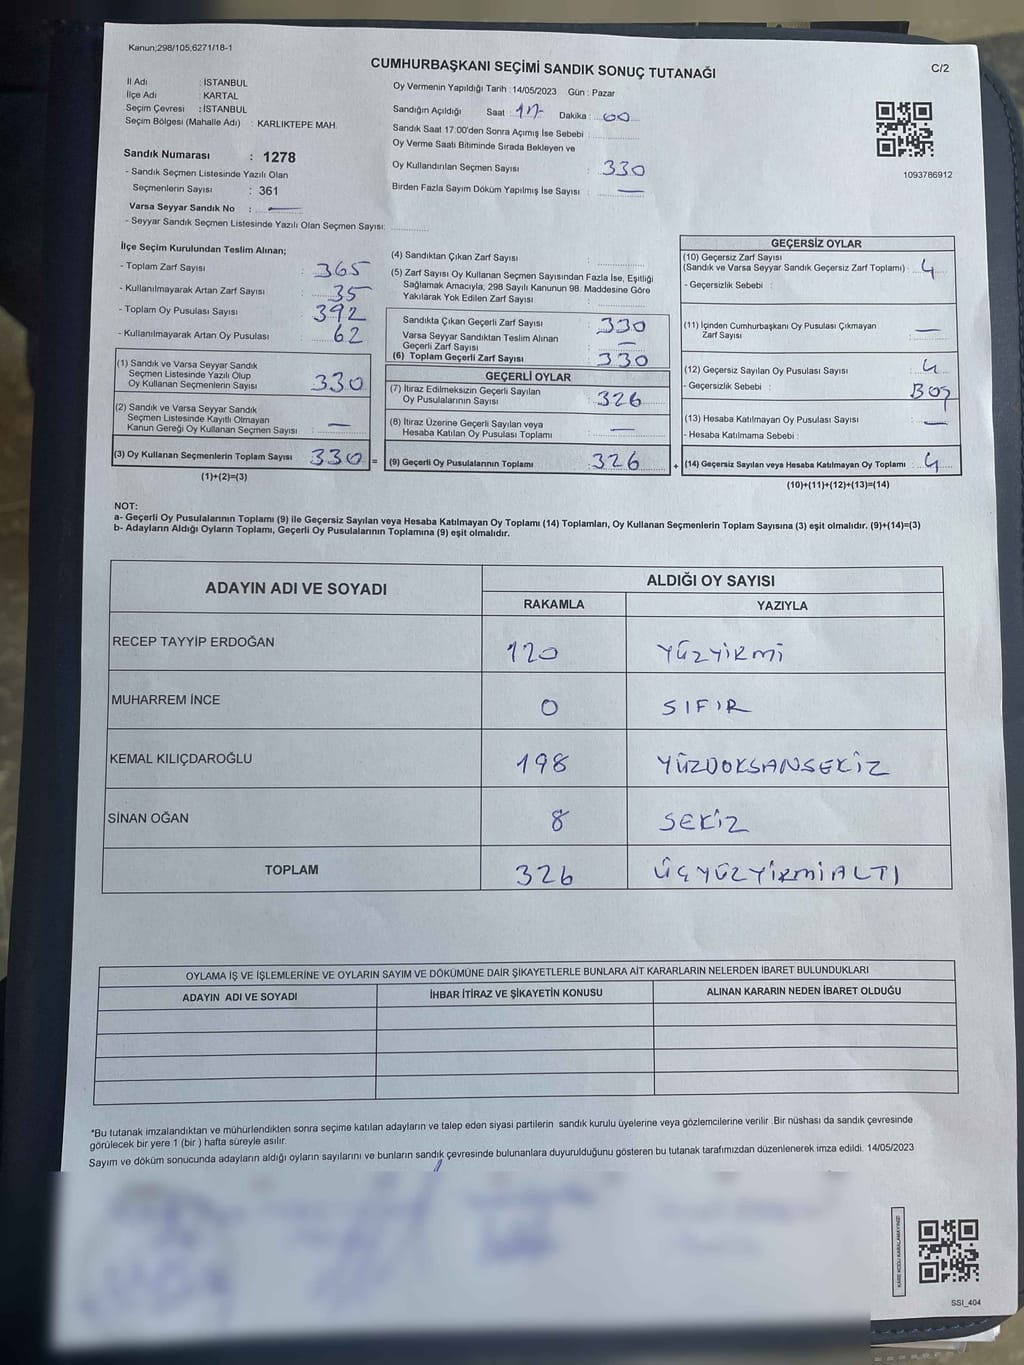 Kanun,298/105,6271/18-1
CUMHURBAŞKANI SEÇİMİ SANDIK SONUÇ TUTANAĞI
C/2
İl Adı : İSTANBUL
İlçe Adı : KARTAL
Seçim Çevresi : İSTANBUL
Seçim Bölgesi (Mahalle Adı) : KARLIKTEPE MAH.
Sandık Numarası : 1278
- Sandık Seçmen Listesinde Yazılı Olan
Seçmenlerin Sayısı : 361
Varsa Seyyar Sandık No : —
- Seyyar Sandık Seçmen Listesinde Yazılı Olan Seçmen Sayısı:
Oy Vermenin Yapıldığı Tarih :14/05/2023 Gün : Pazar
Sandığın Açıldığı Saat : 17 Dakika : 00
Sandık Saat 17:00'den Sonra Açımış İse Sebebi :
Oy Verme Saati Bitiminde Sırada Bekleyen ve
Oy Kullandırılan Seçmen Sayısı : 330
Birden Fazla Sayım Döküm Yapılmış İse Sayısı : —
1093786912
İlçe Seçim Kurulundan Teslim Alınan;
- Toplam Zarf Sayısı : 365
- Kullanılmayarak Artan Zarf Sayısı : 35
- Toplam Oy Pusulası Sayısı : 392
- Kullanılmayarak Artan Oy Pusulası : 62
(1) Sandık ve Varsa Seyyar Sandık
Seçmen Listesinde Yazılı Olup
Oy Kullanan Seçmenlerin Sayısı : 330
(2) Sandık ve Varsa Seyyar Sandık
Seçmen Listesinde Kayıtlı Olmayan
Kanun Gereği Oy Kullanan Seçmen Sayısı : —
(3) Oy Kullanan Seçmenlerin Toplam Sayısı : 330 =
(1)+(2)=(3)
(4) Sandıktan Çıkan Zarf Sayısı :
(5) Zarf Sayısı Oy Kullanan Seçmen Sayısından Fazla İse, Eşitliği
Sağlamak Amacıyla; 298 Sayılı Kanunun 98. Maddesine Göre
Yakılarak Yok Edilen Zarf Sayısı :
Sandıkta Çıkan Geçerli Zarf Sayısı : 330
Varsa Seyyar Sandıktan Teslim Alınan
Geçerli Zarf Sayısı : —
(6) Toplam Geçerli Zarf Sayısı : 330
GEÇERLİ OYLAR
(7) İtiraz Edilmeksizin Geçerli Sayılan
Oy Pusulalarının Sayısı : 326
(8) İtiraz Üzerine Geçerli Sayılan veya
Hesaba Katılan Oy Pusulası Toplamı : —
(9) Geçerli Oy Pusulalarının Toplamı : 326 +
GEÇERSİZ OYLAR
(10) Geçersiz Zarf Sayısı
(Sandık ve Varsa Seyyar Sandık Geçersiz Zarf Toplamı) : 4
- Geçersizlik Sebebi :
(11) İçinden Cumhurbaşkanı Oy Pusulası Çıkmayan
Zarf Sayısı : —
(12) Geçersiz Sayılan Oy Pusulası Sayısı : 4
- Geçersizlik Sebebi : BOŞ
(13) Hesaba Katılmayan Oy Pusulası Sayısı : —
- Hesaba Katılmama Sebebi :
(14) Geçersiz Sayılan veya Hesaba Katılmayan Oy Toplamı : 4
(10)+(11)+(12)+(13)=(14)
NOT:
a- Geçerli Oy Pusulalarının Toplamı (9) ile Geçersiz Sayılan veya Hesaba Katılmayan Oy Toplamı (14) Toplamları, Oy Kullanan Seçmenlerin Toplam Sayısına (3) eşit olmalıdır. (9)+(14)=(3)
b- Adayların Aldığı Oyların Toplamı, Geçerli Oy Pusulalarının Toplamına (9) eşit olmalıdır.
ADAYIN ADI VE SOYADI
ALDIĞI OY SAYISI
RAKAMLA YAZIYLA
RECEP TAYYİP ERDOĞAN 120 YÜZYİRMİ
MUHARREM İNCE 0 SIFIR
KEMAL KILIÇDAROĞLU 198 YÜZDOKSANSEKİZ
SİNAN OĞAN 8 SEKİZ
TOPLAM 326 ÜÇYÜZYİRMİALTI
OYLAMA İŞ VE İŞLEMLERİNE VE OYLARIN SAYIM VE DÖKÜMÜNE DAİR ŞİKAYETLERLE BUNLARA AİT KARARLARIN NELERDEN İBARET BULUNDUKLARI
ADAYIN ADI VE SOYADI İHBAR İTİRAZ VE ŞİKAYETİN KONUSU ALINAN KARARIN NEDEN İBARET OLDUĞU
*Bu tutanak imzalandıktan ve mühürlendikten sonra seçime katılan adayların ve talep eden siyasi partilerin sandık kurulu üyelerine veya gözlemcilerine verilir .Bir nüshası da sandık çevresinde
görülecek bir yere 1 (bir ) hafta süreyle asılır.
Sayım ve döküm sonucunda adayların aldığı oyların sayılarını ve bunların sandık çevresinde bulunanlara duyurulduğunu gösteren bu tutanak tarafımızdan düzenlenerek imza edildi. 14/05/2023
KARE KODU KARALAMAYINIZ!
SSI_404